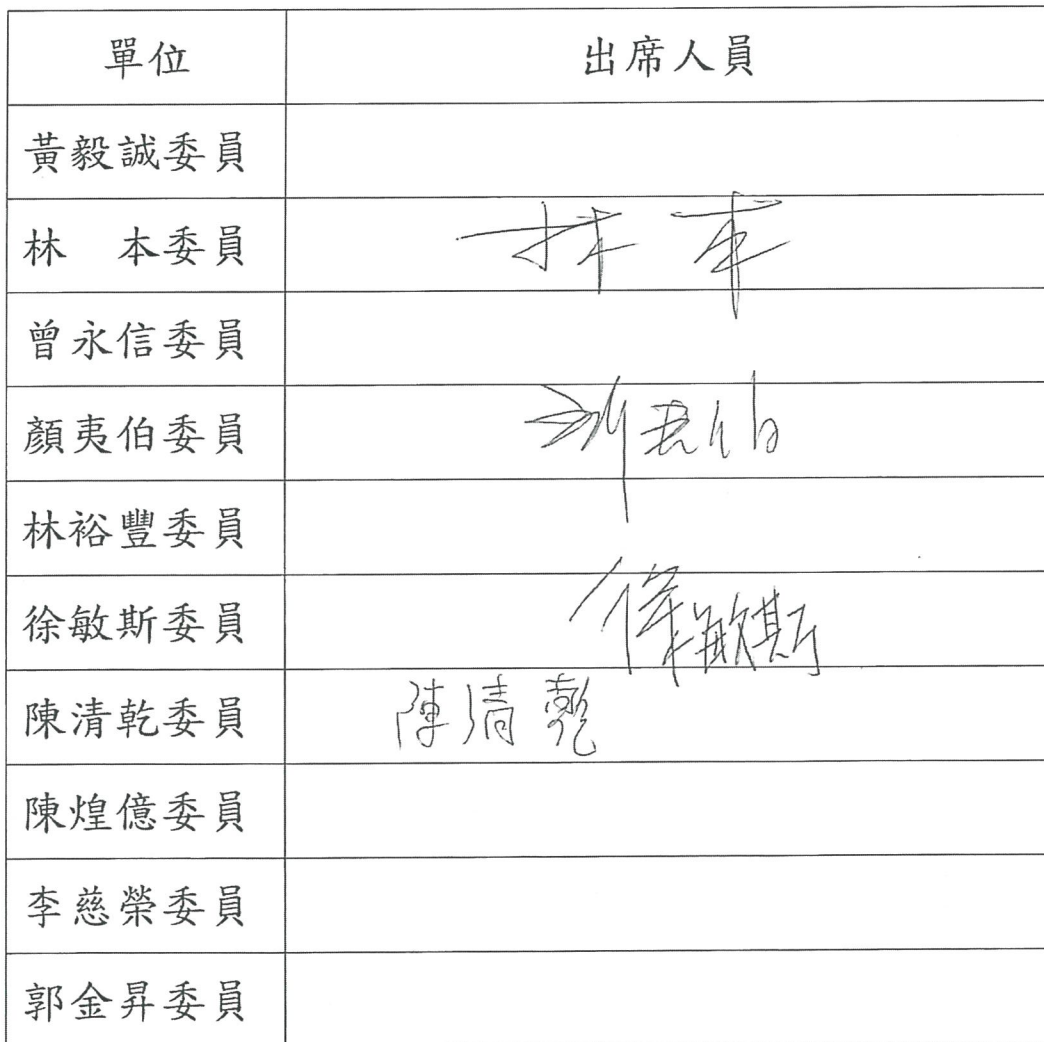 單位 出席人員
黃毅誠委員
林 本委員 林本
曾永信委員
顏夷伯委員
林裕豐委員
徐敏斯委員 徐敏斯
陳清乾委員 陳清乾
陳煌億委員
李慈榮委員
郭金昇委員